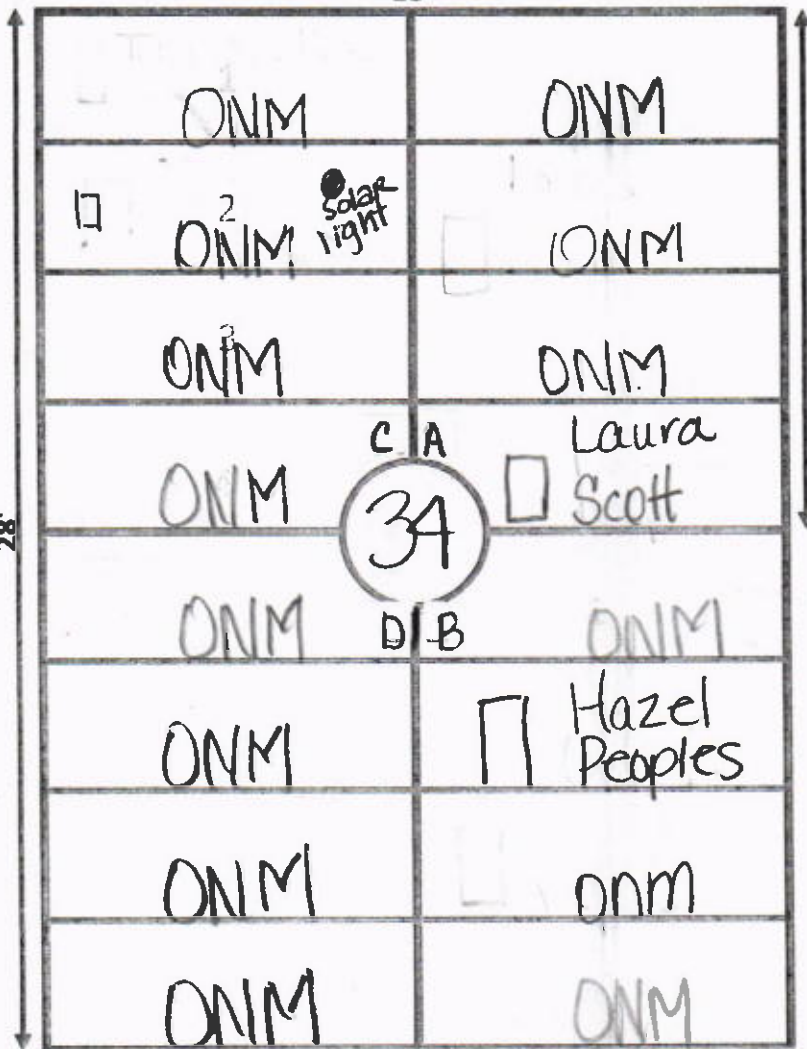 ONM
ONM
2
ONM
solar
light
ONM
3
ONM
ONM
C A
ONM
Laura
Scott
34
28'
ONM
D B
ONM
ONM
Hazel
Peoples
ONM
onm
ONM
ONM